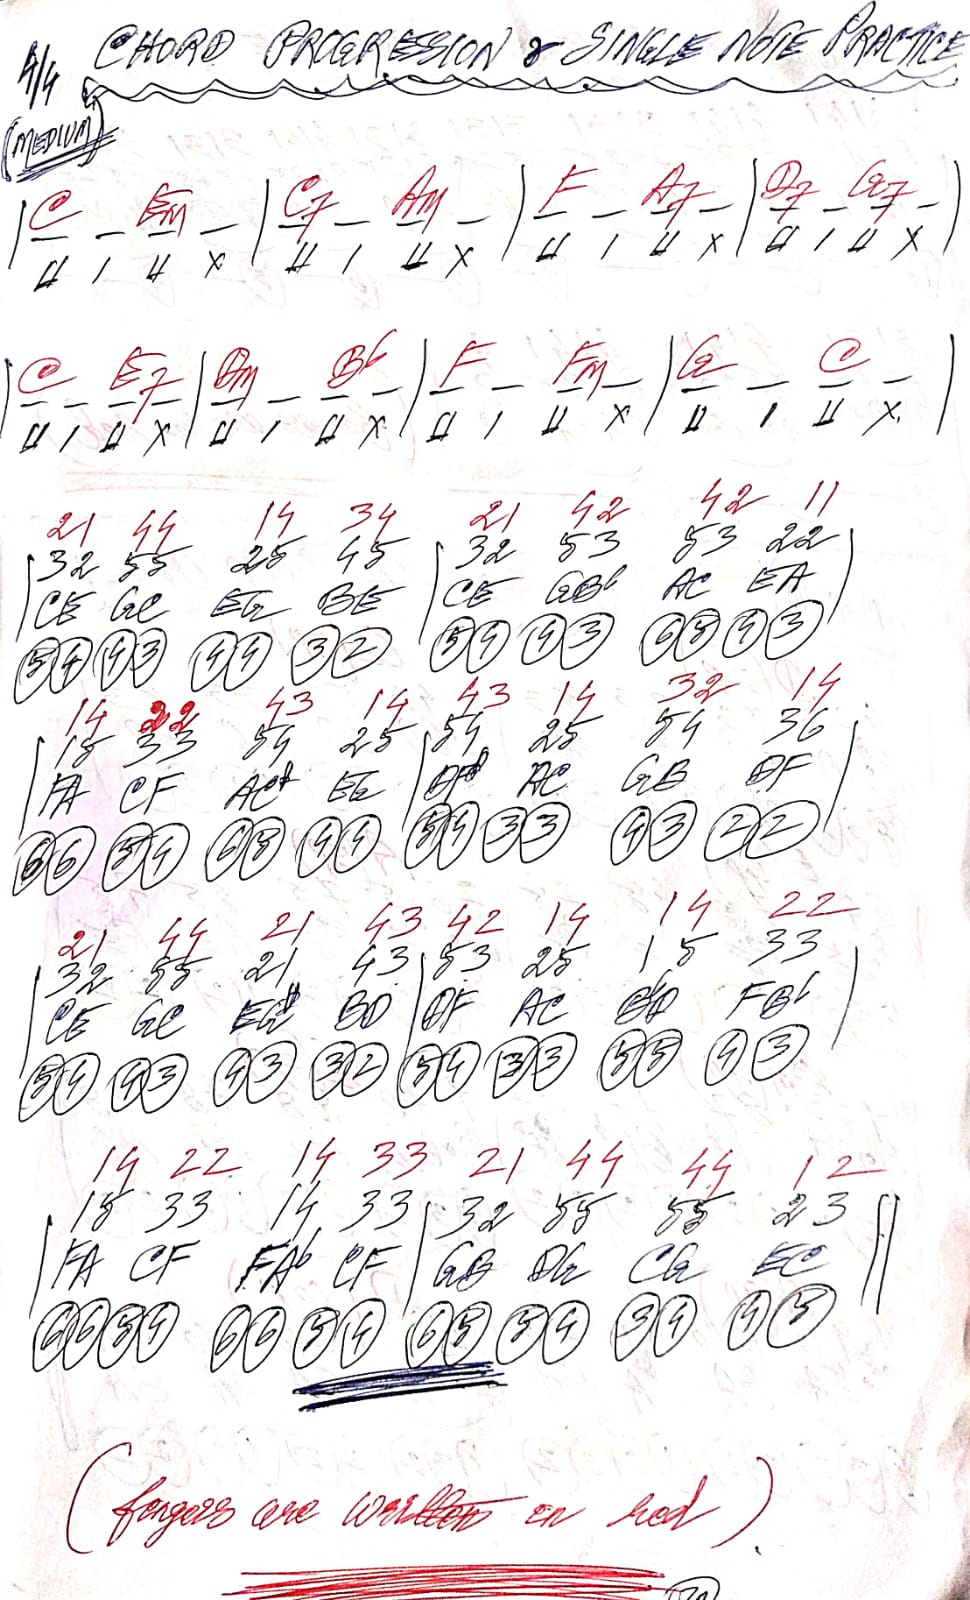 4/4 CHORD PROGRESSION & SINGLE NOTE PRACTICE
(MEDIUM)
| C – Em – | C7 – Am – | F – A7 – | D7 – G7 – |
| C – E7 – | Dm – Bb – | F – Fm – | G – C – |
21 44 14 34 21 42 42 11
| 32 55 25 45 | 32 53 53 22 |
CE GC EG BE CE GBb AC EA
54 43 44 32 54 43 65 43
14 22 43 14 43 14 32 14
| 15 33 54 25 | 54 25 54 36 |
FA CF AC# EG DF# AC GB DF
66 54 65 44 54 33 43 22
21 44 21 43 42 14 14 22
| 32 55 21 43 | 53 25 15 33 |
CE GC EG# BD DF AC BbD FBb
54 43 43 32 54 33 55 43
14 22 14 33 21 44 44 12
| 15 33 14 33 | 32 55 55 23 ||
FA CF FAb CF GB DG CG EC
66 54 66 54 65 54 54 45
(fingers are written in red).